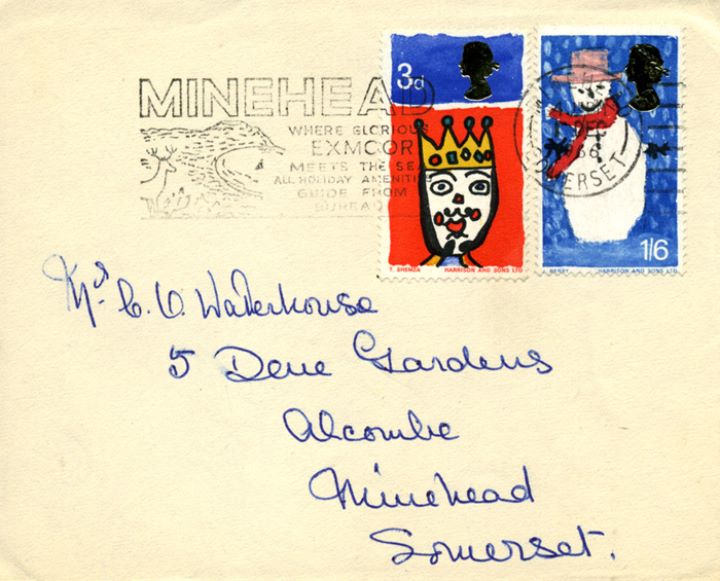 MINEHEAD
WHERE GLORIOUS
EXMOOR
MEETS THE SEA
ALL HOLIDAY AMENITIES
GUIDE FROM
BUREAU
3d
T. SHEMZA HARRISON AND SONS LTD
DEC
66
SOMERSET
1/6
J. BERRY HARRISON AND SONS LTD
Mrs C. V. Waterhouse
5 Dene Gardens
Alcombe
Minehead
Somerset.